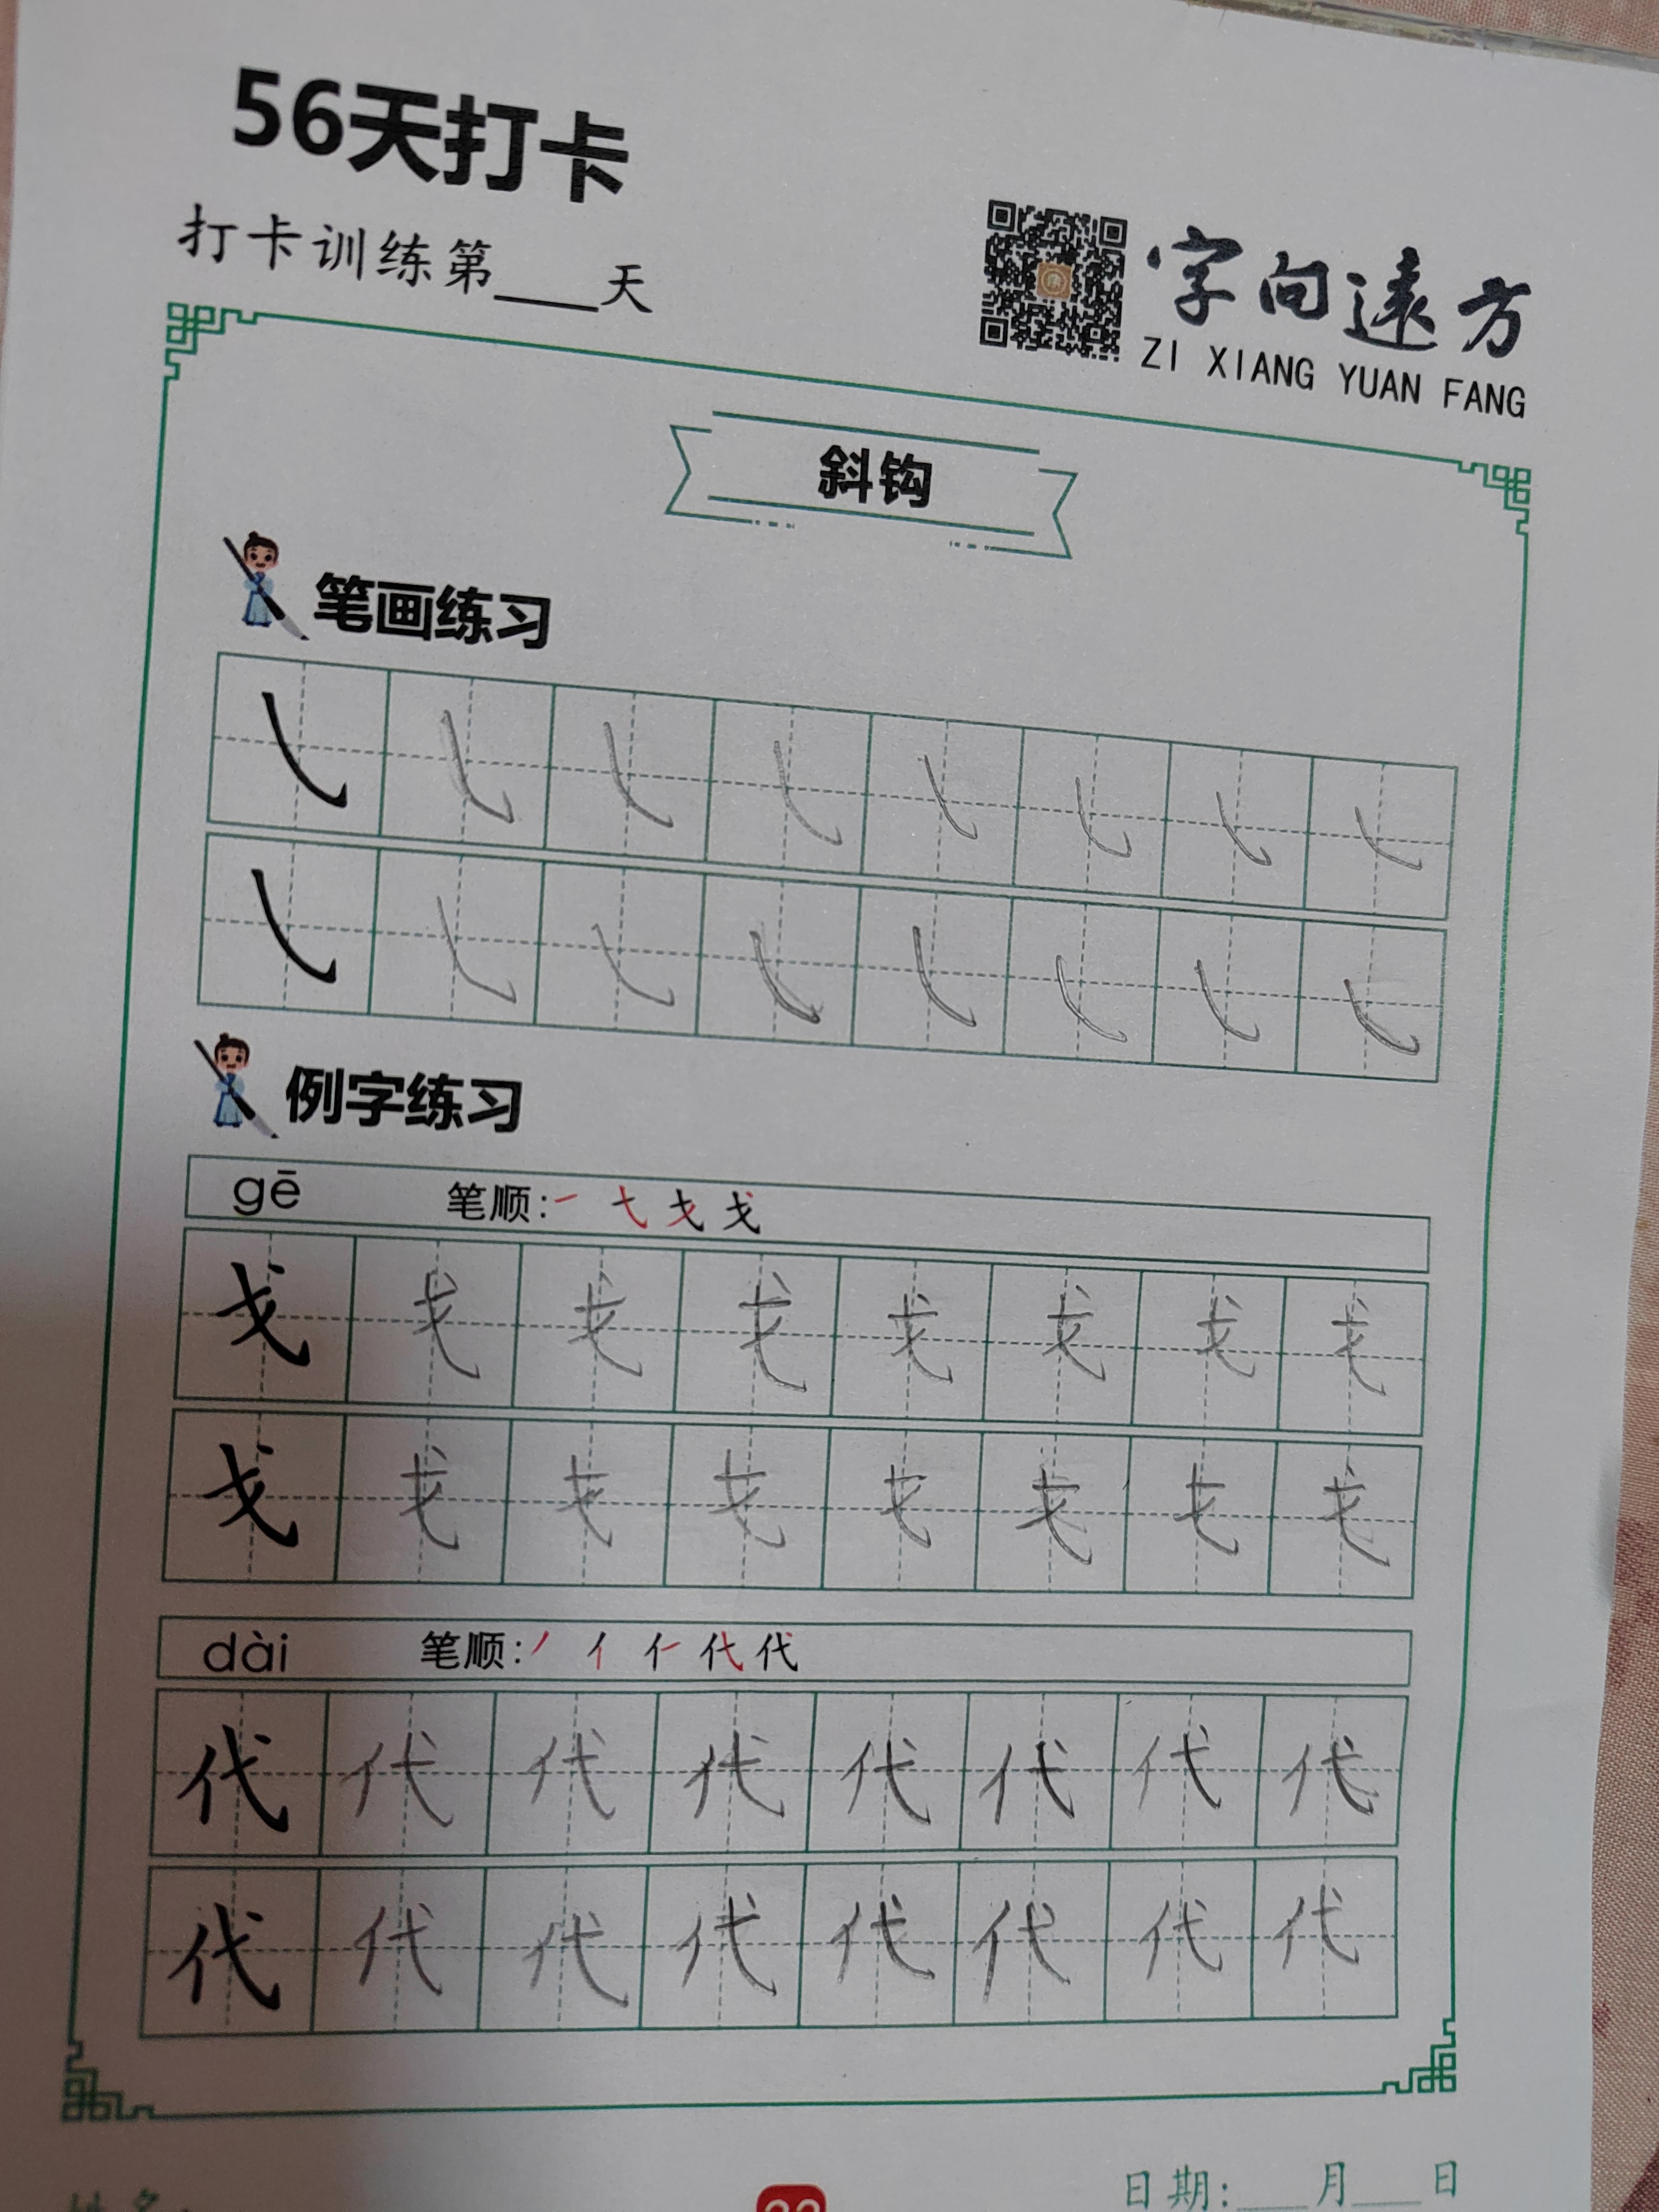 56天打卡
打卡训练第___天
字向遠方
ZI XIANG YUAN FANG
斜钩
笔画练习
㇂ ㇂ ㇂ ㇂ ㇂ ㇂ ㇂ ㇂
㇂ ㇂ ㇂ ㇂ ㇂ ㇂ ㇂ ㇂
例字练习
gē 笔顺:一 弋 戈 戈
戈 戈 戈 戈 戈 戈 戈 戈
戈 戈 戈 戈 戈 戈 戈 戈
dài 笔顺:丿 亻 仁 代 代
代 代 代 代 代 代 代 代
代 代 代 代 代 代 代 代
日期:___月___日